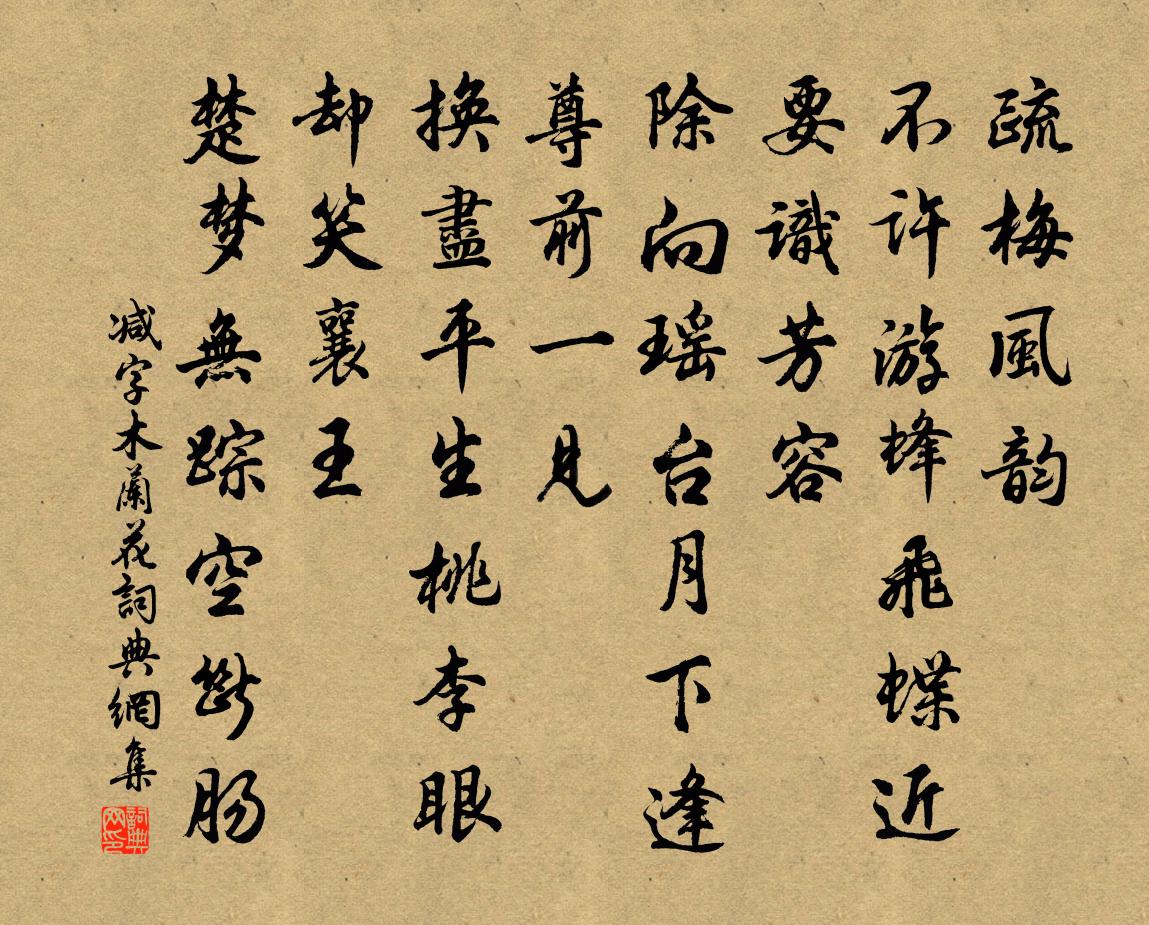 疏梅風韵
不许游蜂飛蝶近
要識芳容
除向瑶台月下逢
尊前一見
換盡平生桃李眼
却笑襄王
楚梦無踪空断肠
减字木蘭花詞典網集
詞典
网印